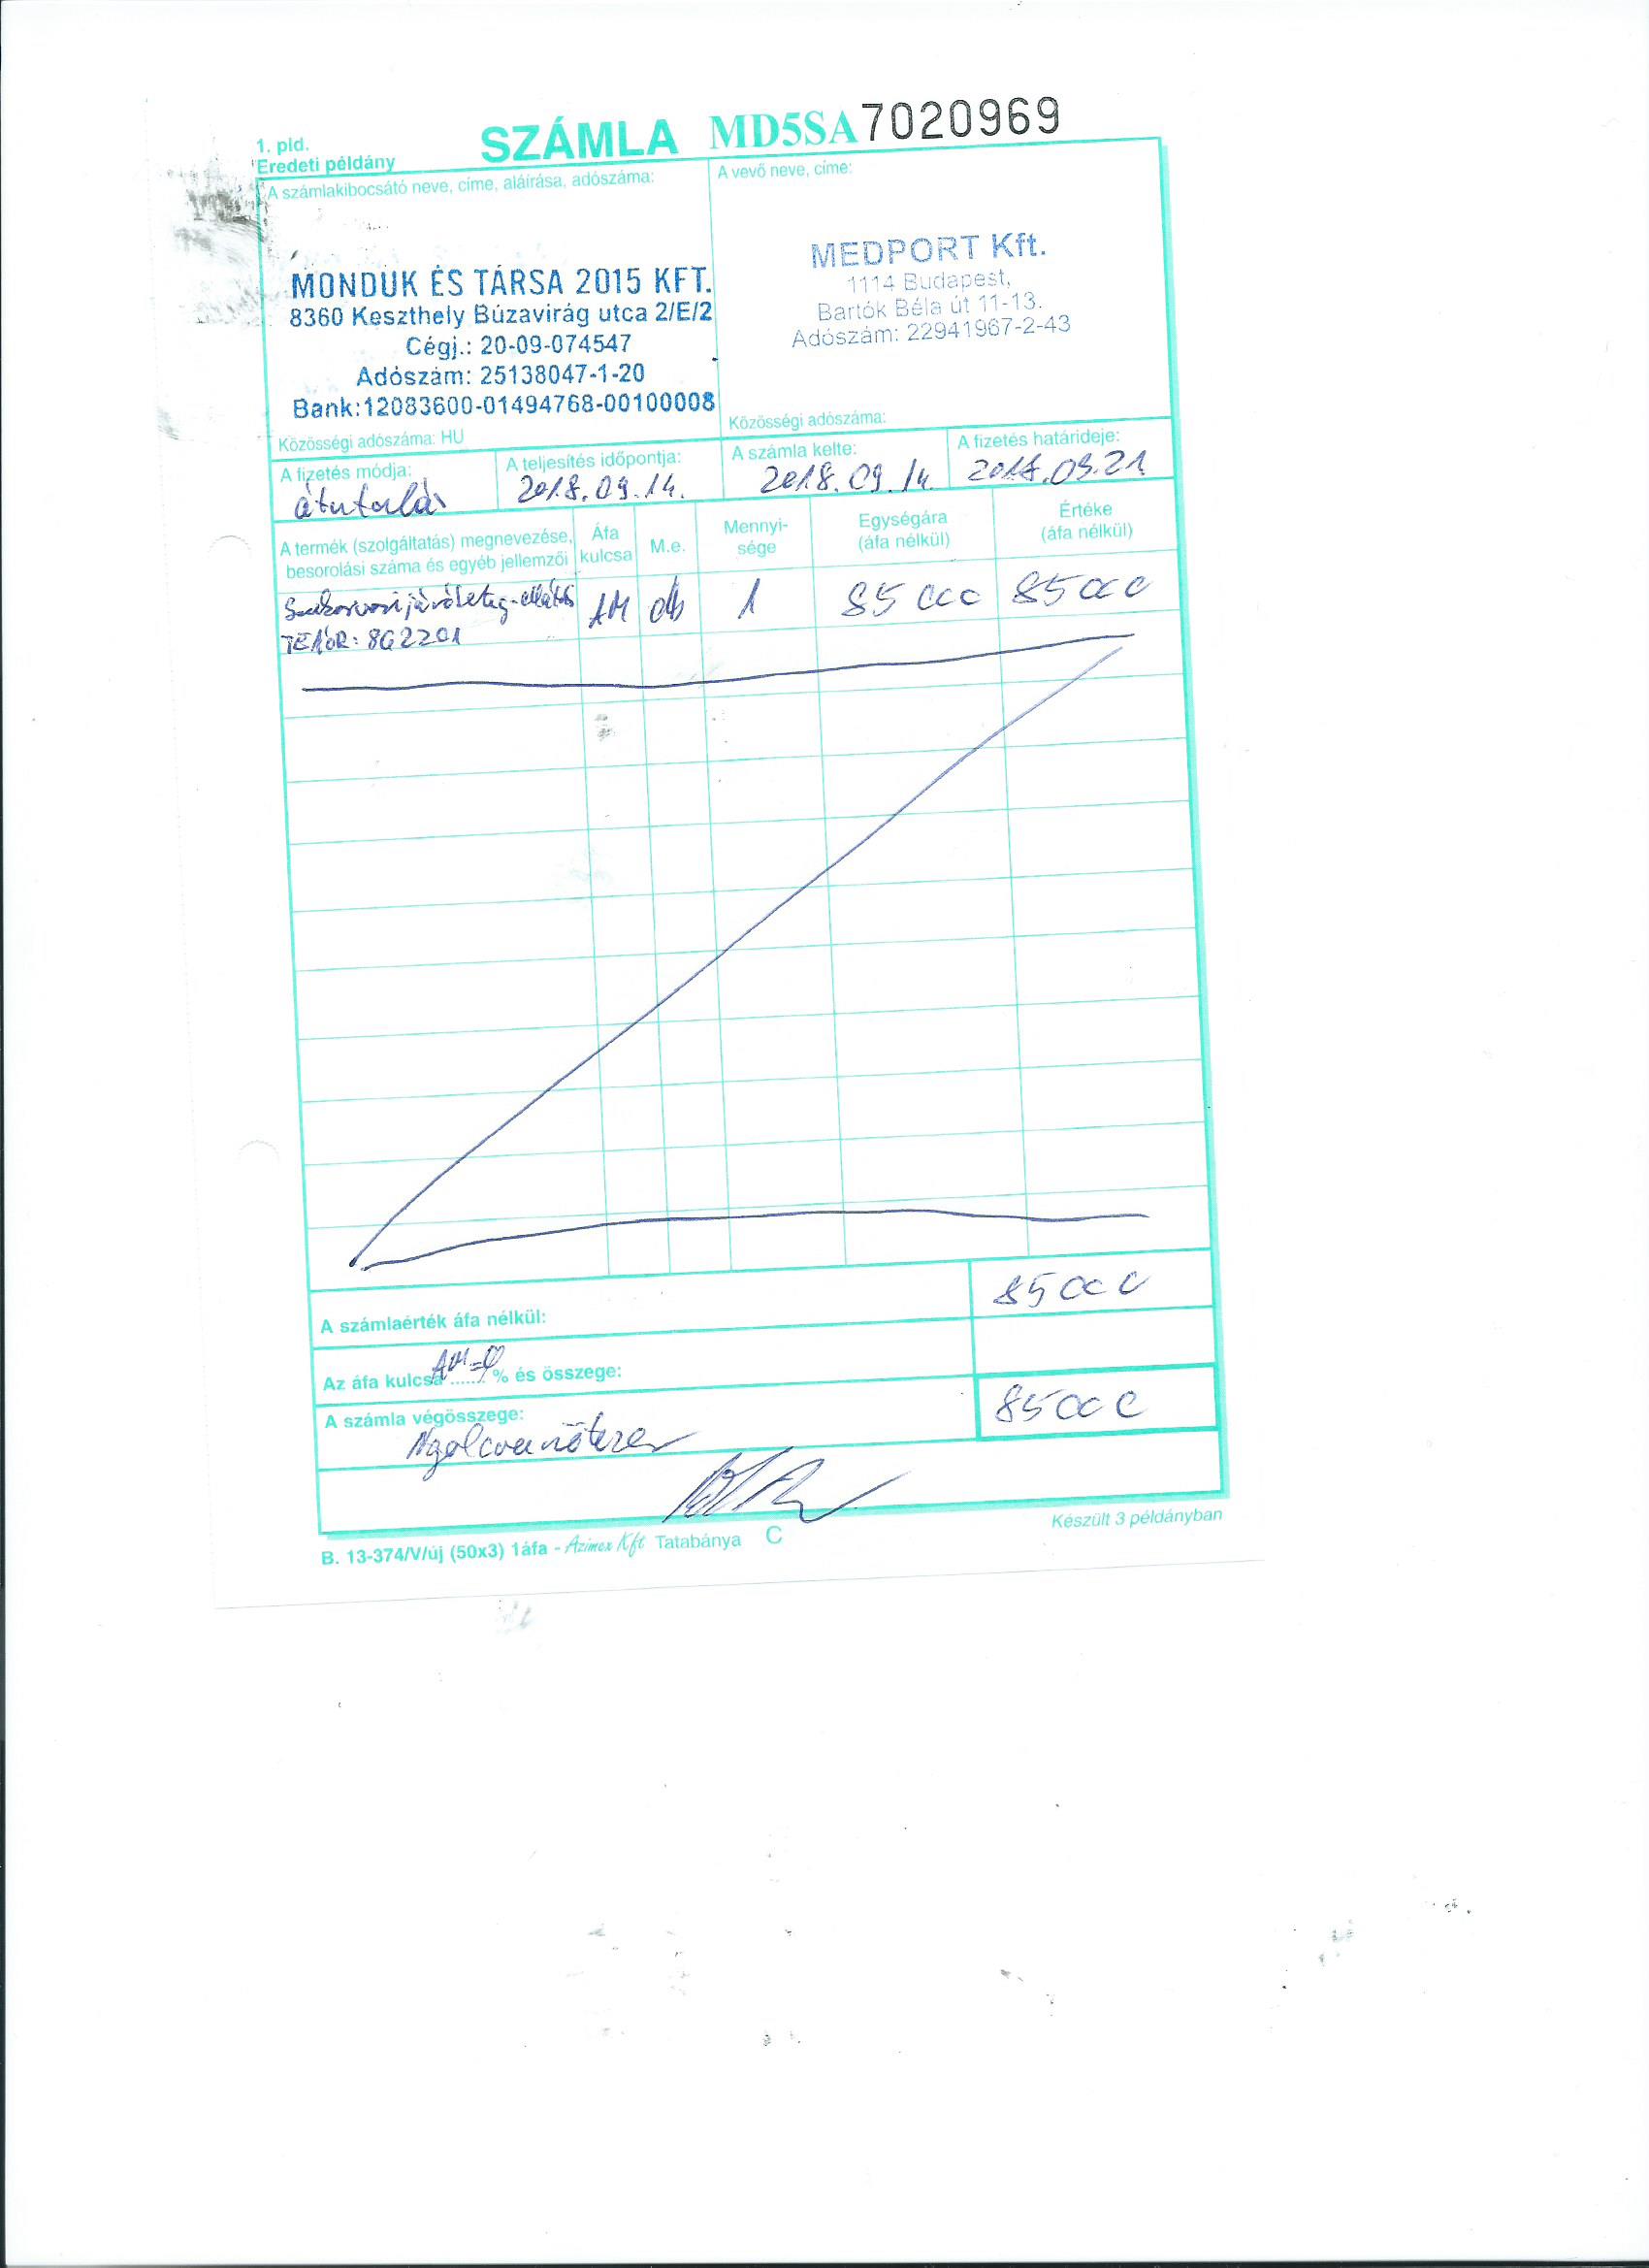 1. pld.
Eredeti példány
SZÁMLA MD5SA 7020969
A számlakibocsátó neve, címe, aláírása, adószáma:
MONDUK ÉS TÁRSA 2015 KFT.
8360 Keszthely Búzavirág utca 2/E/2
Cégj.: 20-09-074547
Adószám: 25138047-1-20
Bank:12083600-01494768-00100008
Közösségi adószáma: HU
A vevő neve, címe:
MEDPORT Kft.
1114 Budapest,
Bartók Béla út 11-13.
Adószám: 22941967-2-43
Közösségi adószáma:
A fizetés módja:
átutalás
A teljesítés időpontja:
2018.09.14.
A számla kelte:
2018.09.14.
A fizetés határideje:
2018.09.21
A termék (szolgáltatás) megnevezése, besorolási száma és egyéb jellemzői
Áfa kulcsa
M.e.
Mennyi-sége
Egységára (áfa nélkül)
Értéke (áfa nélkül)
Szakorvosi járóbeteg-ellátás AM db 1 85 000 85 000
TEÁOR: 862201
A számlaérték áfa nélkül: 85 000
Az áfa kulcsa AM=0 % és összege:
A számla végösszege: 85 000
Nyolcvanötezer
B. 13-374/V/új (50x3) 1áfa - Azimex Kft Tatabánya C
Készült 3 példányban